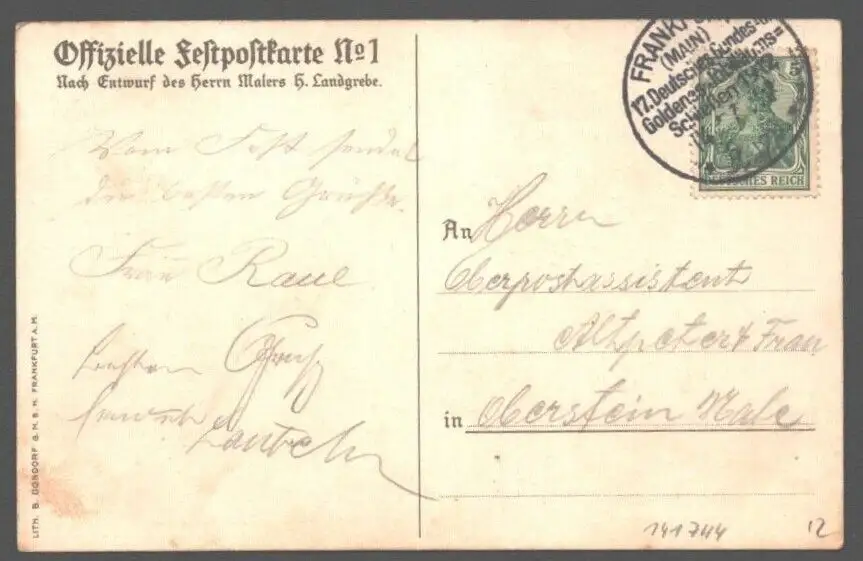 Offizielle Festpostkarte No 1
Nach Entwurf des Herrn Malers H. Landgrebe.
Vom Fest sendet
die besten Grüße
Frau Raue
besten Gruß
FRANKFURT
(MAIN)
17. Deutsches Bundes- u.
Goldenes Jubiläums=
Schießen
5
DEUTSCHES REICH
An Herrn
Oberpostassistent
Altpeter & Frau
in Oberstein Nahe
LITH. B. DONDORF G.M.B.H. FRANKFURT A.M.
141744
12